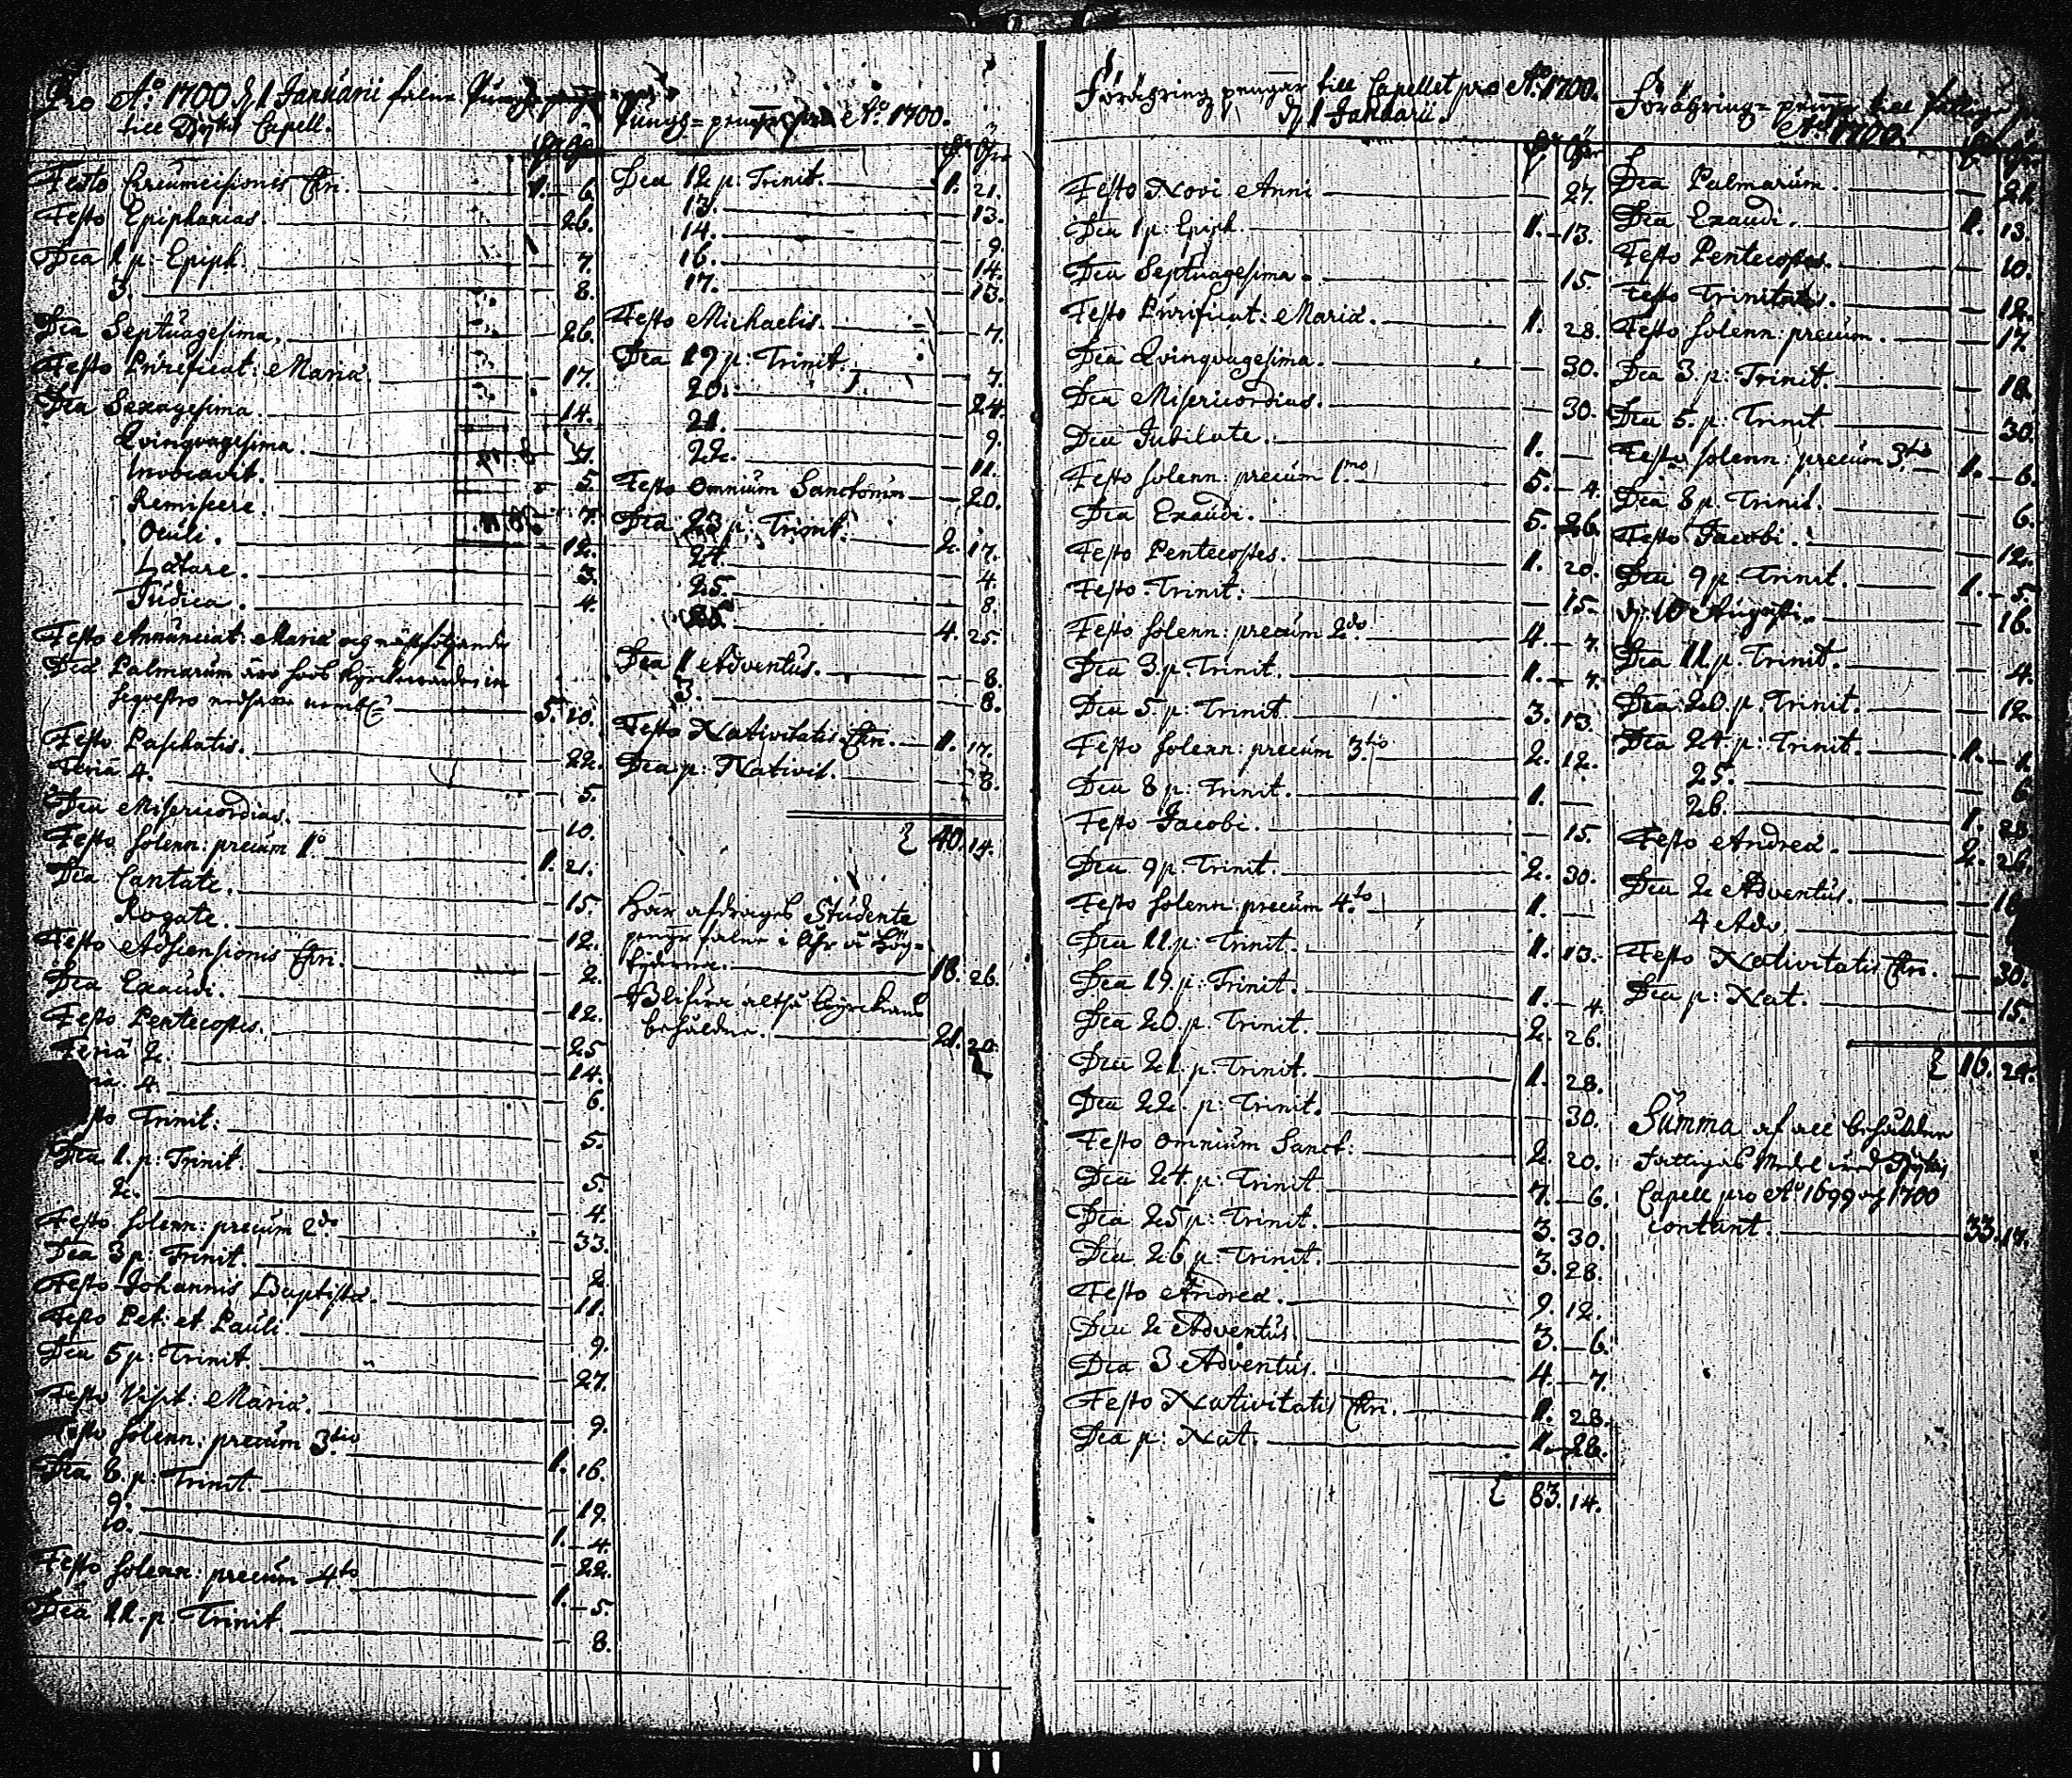 Pro Aº 1700 d. 1 Januarii falne Pungz
till Capell.
Festo Circumcisionis Chri. 1. 6.
Festo Epiphanias. 26.
Dca 1 p. Epiph. 7.
3. 8.
Dca Septuagesima. 26.
Festo Purificat: Maria. 17.
Dca Sexagesima. 14.
Qvinqvagesima.
Invocavit. 5.
Remiscere. 7.
Oculi. 12.
Lætare. 3.
Judica. 4.
Festo Annunciat: Maria och nästfölgande
Dca Palmarum äro hoos Kyrkewärden in
seqvestro 5. 20.
Festo Paschatis. 22.
Feria 4. 5.
Dca Misericordias. 10.
Festo solenn: precum 1º 1. 21.
Dca Cantate. 15.
Rogate. 12.
Festo Adscensionis Chri. 2.
Dca Exaudi. 12.
Festo Pentecostes. 25
Feria 2. 14.
4. 6.
Trinit: 5.
Dca 1. p: Trinit. 5.
2. 4.
Festo solenn: precum 2do 33.
Dca 3 p: Trinit. 2
Festo Johannis Baptistæ. 11.
Festo Pet: et Pauli. 9.
Dca 5 p: Trinit 27.
Festo Visit: Maria. 9.
Festo solenn: precum 3tio 1. 16.
Dca 8 p: Trinit. 19.
9. 1. 4.
10. 22.
Festo solenn: precum 4to 1. 5.
Dca 11. p: Trinit. 8.
Pungs= penger pro Aº. 1700.
Dca 12 p: Trinit. 1. 21.
13. 13.
14. 9.
16. 14.
17. 13.
Festo Michaelis. 7.
Dca 19 p: Trinit. 7.
20. 24.
21. 9.
22. 11.
Festo Omnium Sanctorum 20.
Dca 23 p: Trinit. 2. 17.
24. 4.
25. 8.
4. 25.
Dca 1 Adventus. 8.
3. 8.
Festo Nativitatis Chri. 1. 17.
Dca p: Nativit. 8.
40. 14.
Här afdrages Studente
penger falne i Åhr å Hög=
tijderna. 18. 26.
Blifwa altså Kyrckians
behåldne. 21. 20.
Förähring penger till Capellet pro Aº. 1700.
d. 1 Januarii.
Festo Novi Anni 27.
Dca 1 p: Epiph. 1. 13.
Dca Septuagesima. 15.
Festo Purificat: Maria. 1. 28.
Dca Qvinqvagesima. 30.
Dca Misericordias. 30.
Dca Jubilate. 1.
Festo solenn: precum 1mo 5. 4.
Dca Exaudi. 5. 26.
Festo Pentecostes. 1. 20.
Festo Trinit: 15.
Festo solenn: precum 2do 4. 7.
Dca 3. p: Trinit. 1. 7.
Dca 5. p: Trinit. 3. 13.
Festo solenn: precum 3tio 2. 12.
Dca 8 p: Trinit. 1.
Festo Jacobi. 15.
Dca 9 p: Trinit. 2. 30.
Festo solenn: precum 4to 1.
Dca 11. p: Trinit. 1. 13.
Dca 19. p: Trinit. 1. 4.
Dca 20. p: Trinit. 2. 26.
Dca 21. p: Trinit. 1. 28.
Dca 22. p: Trinit. 30.
Festo Omnium Sanct: 2. 20.
Dca 24. p: Trinit 7. 6.
Dca 25 p: Trinit. 3. 30.
Dca 26 p: Trinit. 3. 28.
Festo Andreæ. 9. 12.
Dca 2 Adventus. 3. 6.
Dca 3 Adventus. 4. 7.
Festo Nativitatis Chri. 1. 28.
Dca p: Nat. 1. 22.
83. 14.
Förähring= penger till
Aº 1700.
Dca Palmarum. 21
Dca Exaudi. 1. 13.
Festo Pentecostes. 10.
Festo Trinitatis. 12.
Festo solenn: precum. 17.
Dca 3. p: Trinit. 18.
Dca 5. p: Trinit. 30.
Festo solenn: precum 3tio 1. 6.
Dca 8 p. Trinit. 6.
Festo Jacobi. 12.
Dca 9 p. Trinit. 1. 5.
d. 10 Augusti. 16.
Dca 11 p. Trinit. 4.
Dca 20. p. Trinit. 12.
Dca 24. p: Trinit. 1. 1.
25. 6
26. 1. 28.
Festo Andreæ. 2. 26
Dca 2 Adventus.
4 Adv.
Festo Nativitatis Chri. 30.
Dca p: Nat. 15.
16. 24.
Summa af all behåldne
Fattigas Medel wed
Capell pro Aº 1699 och 1700
contant. 33. 17.